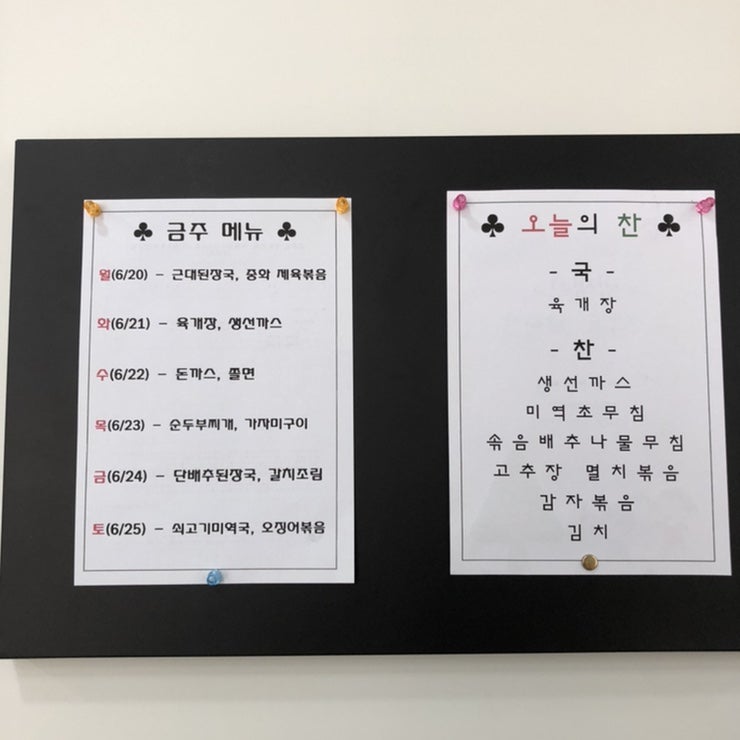 ♣ 금주 메뉴 ♣
월(6/20) - 근대된장국, 중화 제육볶음
화(6/21) - 육개장, 생선까스
수(6/22) - 돈까스, 쫄면
목(6/23) - 순두부찌개, 가자미구이
금(6/24) - 단배추된장국, 갈치조림
토(6/25) - 쇠고기미역국, 오징어볶음
♣ 오늘의 찬 ♣
- 국 -
육개장
- 찬 -
생선까스
미역초무침
솎음배추나물무침
고추장 멸치볶음
감자볶음
김치